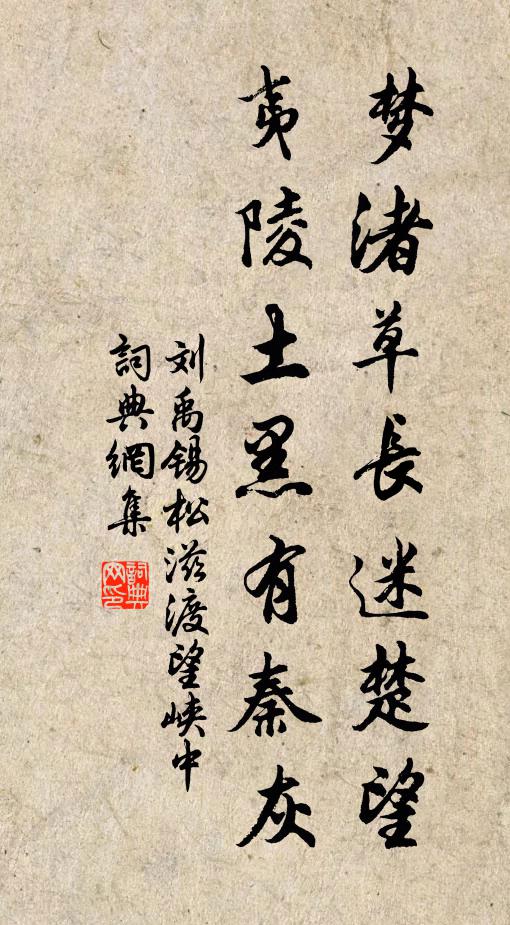 梦渚草長迷楚望
夷陵土黑有秦灰
刘禹锡松滋渡望峡中
詞典網集
詞典网印